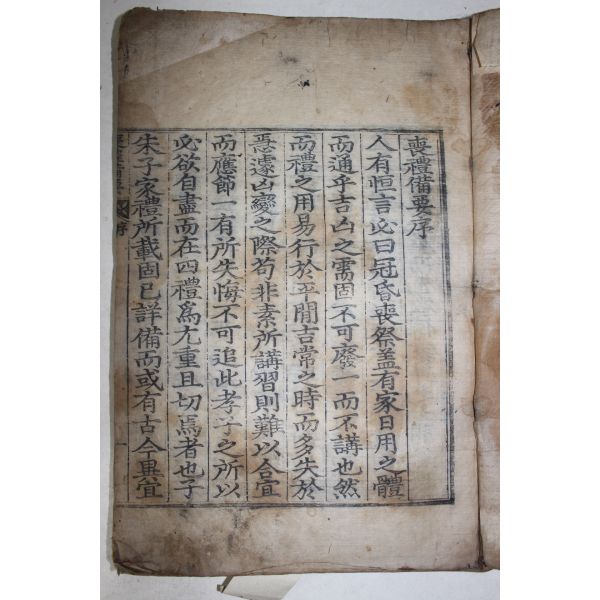 喪禮備要序
人有恒言必曰冠昏喪祭盖有家日用之體
而通乎吉凶之需固不可廢一而不講也然
而禮之用易行於平閒吉常之時而多失於
急遽凶變之際苟非素所講習則難以合宜
而應節一有所失悔不可追此孝子之所以
必欲自盡而在四禮爲尤重且切焉者也子
朱子家禮所載固已詳備而或有古今異宜
序
一